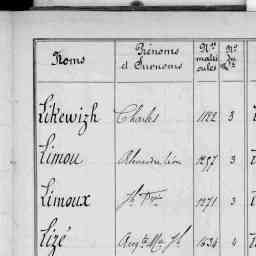 Noms Prénoms et Surnoms Nos matricules Nos du
Likewizh Charles 1122 3
Limou Alexandre Léon 1277 3
Limoux Jh 1271 3
Lizé Augte Mie Jh 1234 4